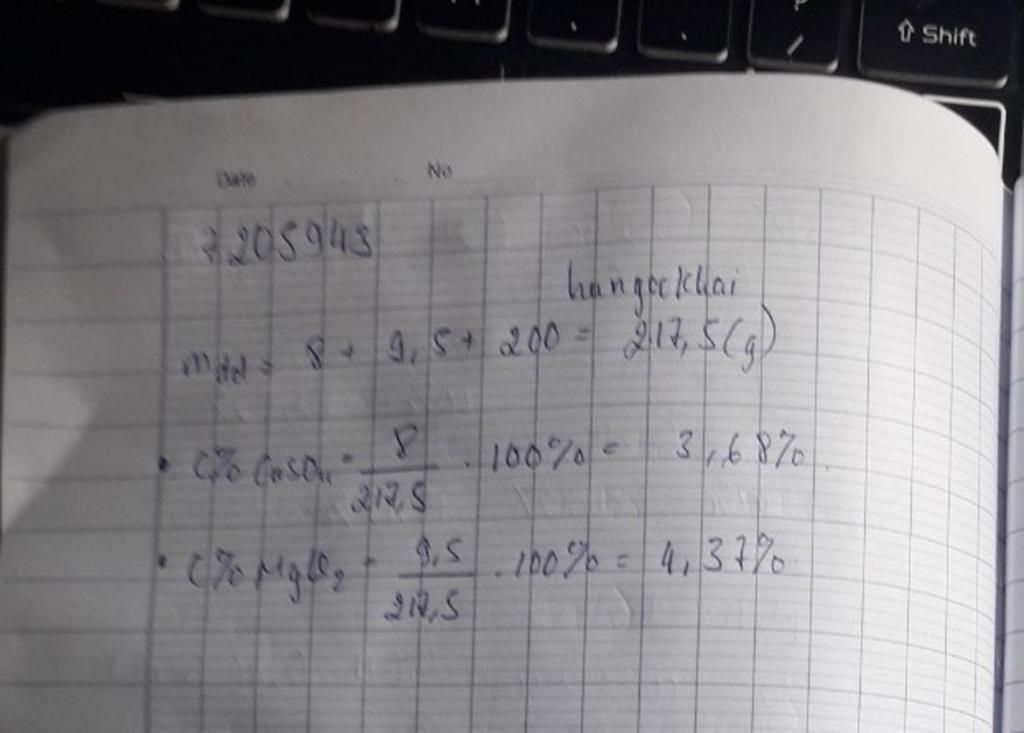 ⇧ Shift
Date No
7205943
hangockhai
mdd = 8 + 9,5 + 200 = 217,5(g)
• C% CuSO4 = 8/217,5 . 100% = 3,68%
• C% MgCl2 = 9,5/217,5 . 100% = 4,37%